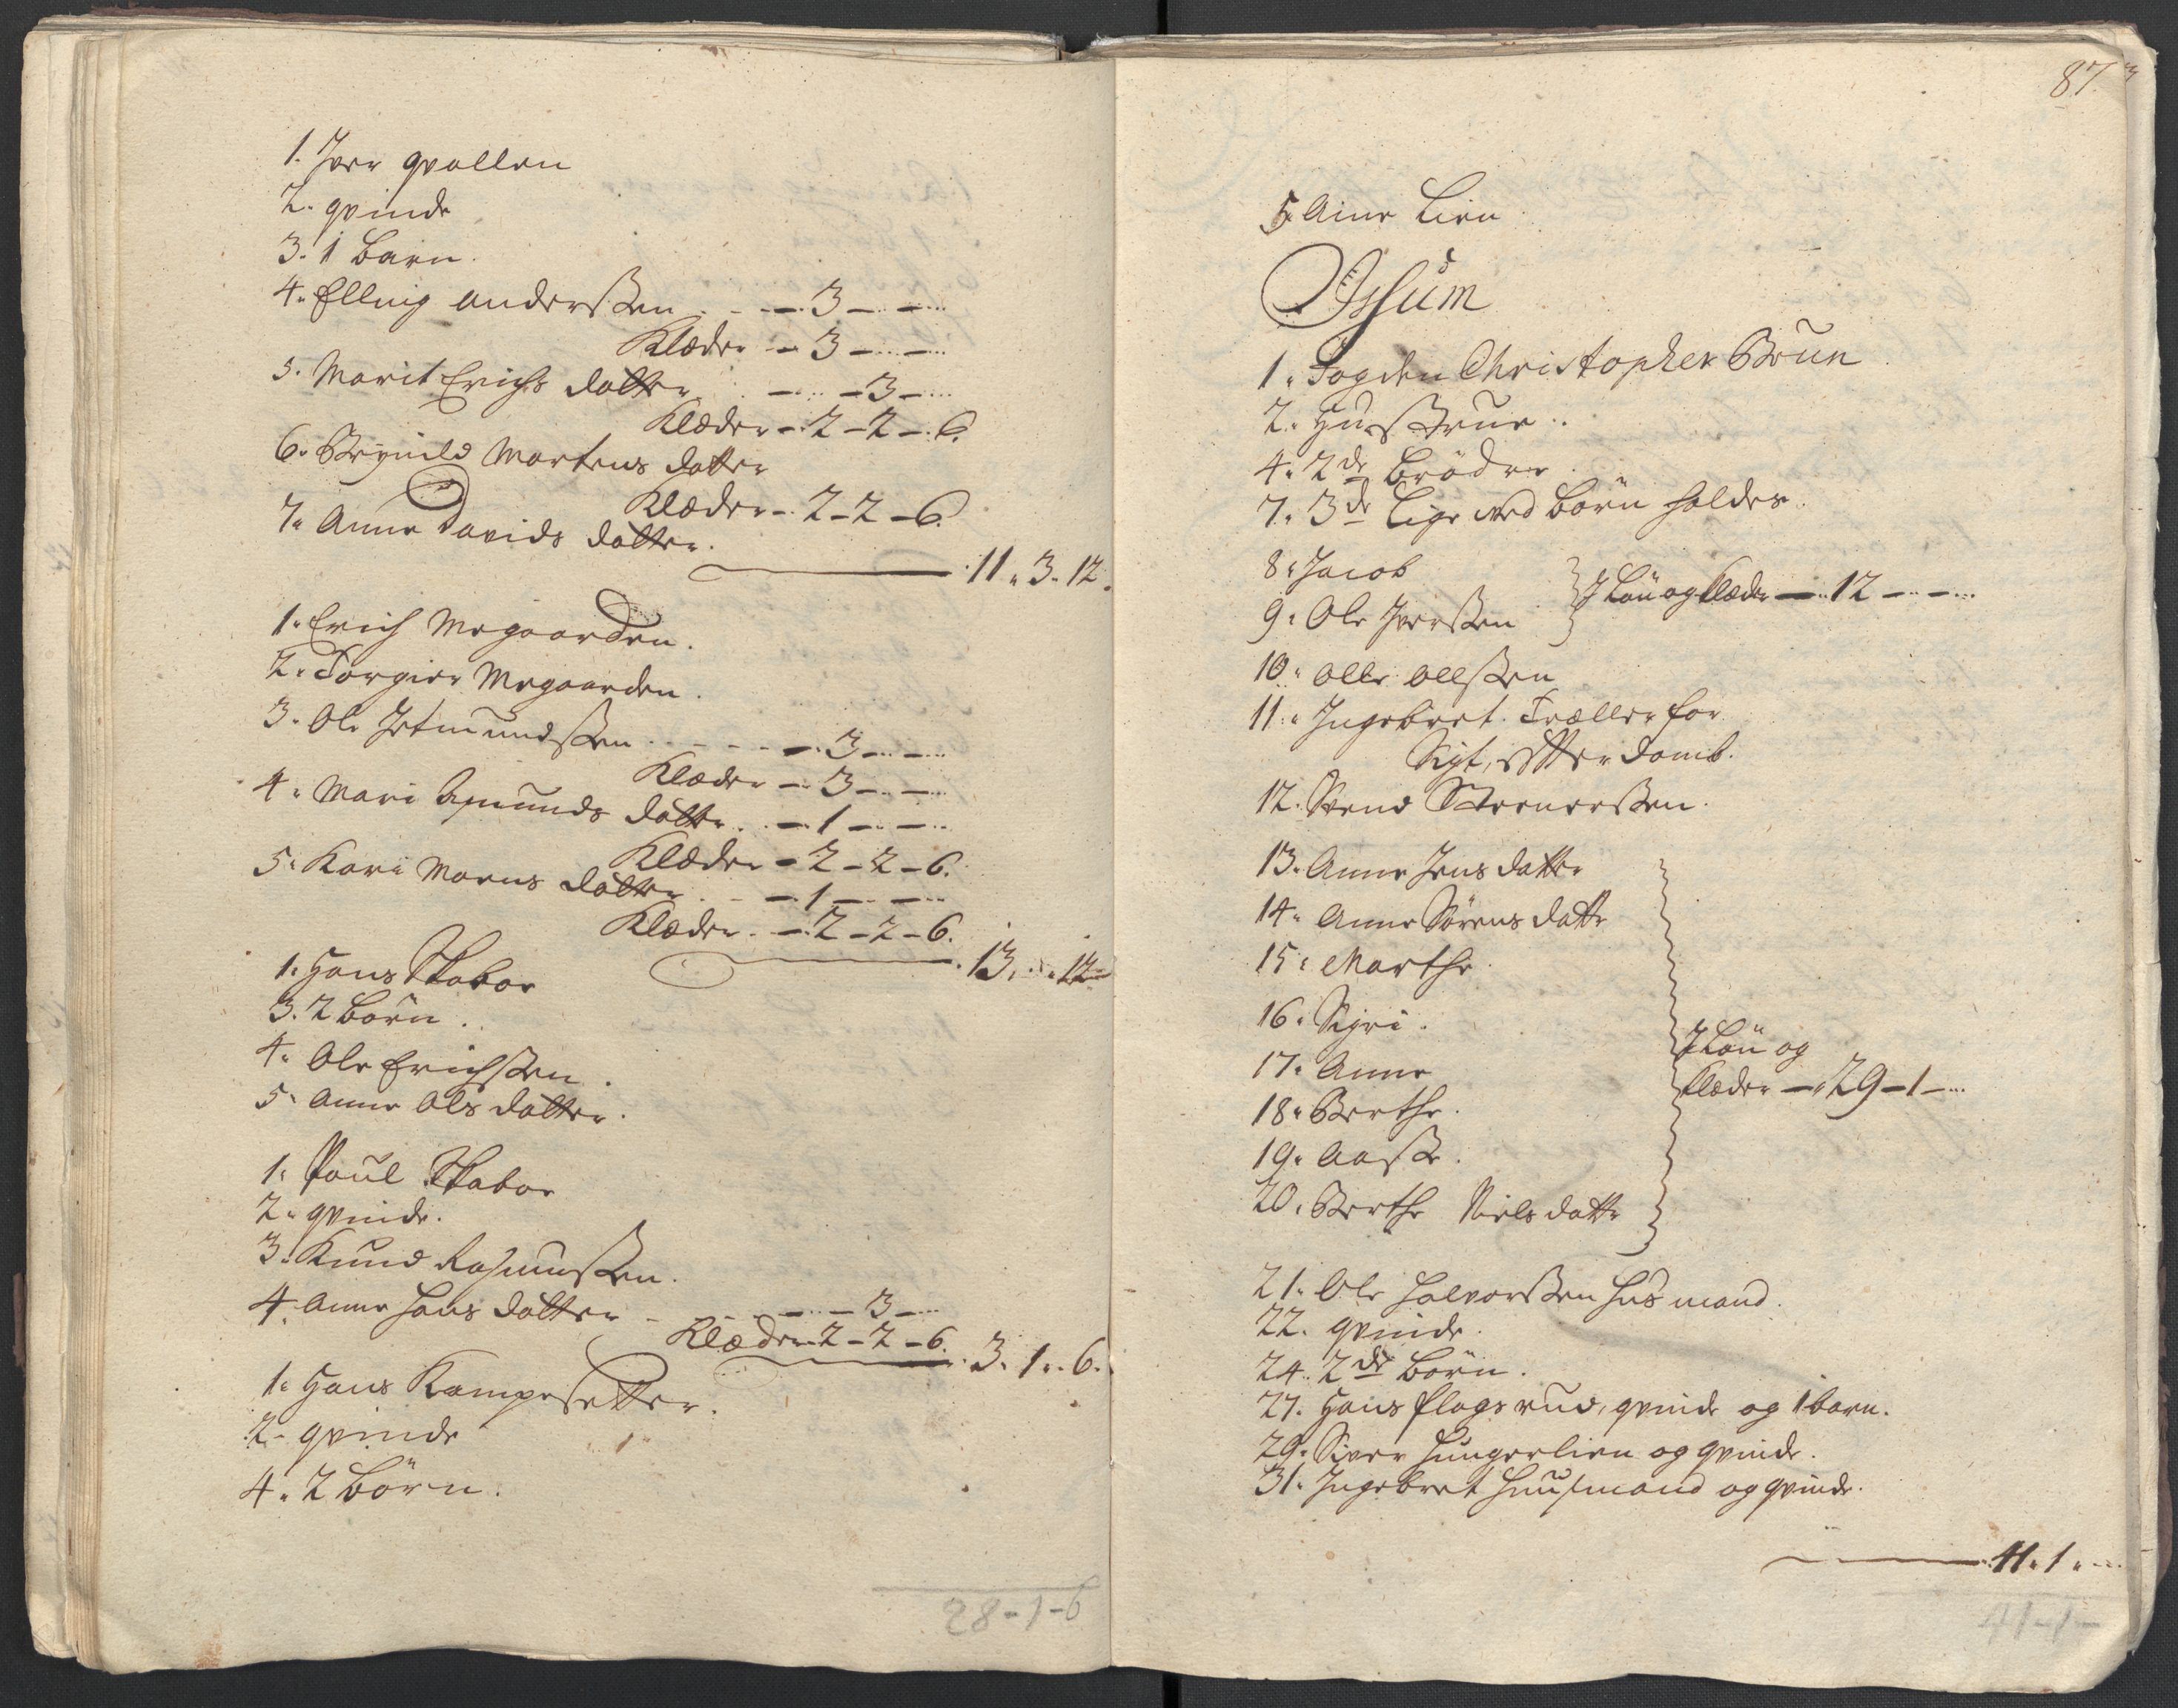 1. Iver qvollen
2. qvinde
3. 1 barn.
4. Elling anderßen . . — 3 — —
Klæder — 3 — —
5. Marit Erichs dotter . — — 3 —
Klæder — 2 — 2 — 6.
6. Brynild Mortens dotter
Klæder — 2 — 2 — 6.
7. Anne Davids dotter.
11. 3. 12.
1. Erich Megaarden.
2. Torgier Megaarden.
3. Ole Jetmundßen . . . — 3 — —
Klæder — 3 — —
4. Mari Amunds dotter. — 1 — —
Klæder — 2 — 2 — 6.
5. Kari Moens dotter . — 1 — —
Klæder. — 2 — 2 — 6.
13. . 12
1. Hans Stabor
3. 2 børn.
4. Ole Erichßen.
5. Anne Ols dotter.
1. Poul Stabor
2. qvinde.
3. Knud Rasmußen.
4. Anne Hans dotter — — 3 —
Klæder 2 — 2 — 6.
3. 1. 6.
1. Hans Kampesetter.
2. qvinde
4. 2 børn.
28-1-6
87
5. Aine Lien
Issum
1. Fogden Christopher Brun
2. Hustrue.
4. 2de brødre.
7. 3de børn
8. Jacob
9. Ole Iverßen
I Løn og klæder — 12 — —
10. Olle Ollßen
11. Ingebret.
12. Svend
13. Anne Jens datter
14. Anne Sørens datter
15. Marthe.
16. Sigri.
17. Anne
18. Berthe.
19. Aaße.
20. Berthe Niels datter
I Løn og
klæder — 29 — 1 —
21. Ole Halvorßen Husmand.
22. qvinde.
24. 2de børn.
27. Hans Flagsrud, qvinde og 1 barn.
29. Siver Hungerlien og qvinde.
31. Ingebret Huusmand og qvinde.
41. 1.
41-1-